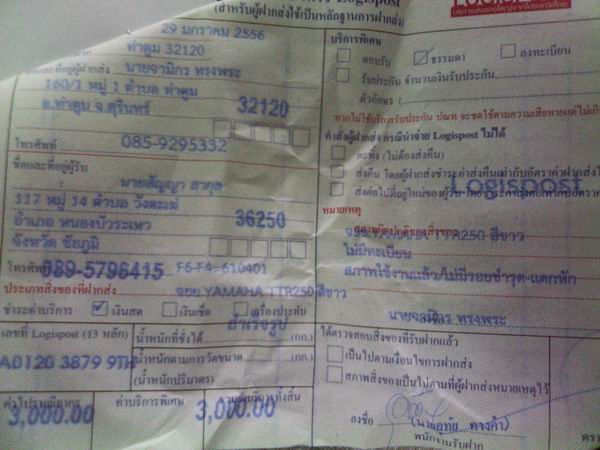 Logispost
(สำหรับผู้ฝากส่งใช้เป็นหลักฐานการฝากส่ง)
บริการส่งของใหญ่จากไปรษณีย์ไทย
29 มกราคม 2556
ท่าตูม 32120
ชื่อและที่อยู่ผู้ฝากส่ง นายจามิกร ทรงพระ
160/1 หมู่ 1 ตำบล ท่าตูม
อ.ท่าตูม จ.สุรินทร์ 32120
โทรศัพท์ 085-9295332
ชื่อและที่อยู่ผู้รับ
นายสัญญา ลากุล
317 หมู่ 14 ตำบล วังตะเฆ่
อำเภอ หนองบัวระเหว 36250
จังหวัด ชัยภูมิ
โทรศัพท์ 089-5796415 F6-F4-610401
ประเภทสิ่งของที่ฝากส่ง จยย YAMAHA TTR250 สีขาว
ชำระค่าบริการ เงินสด เงินเชื่อ เครื่องประทับ
เลขที่ Logispost (13 หลัก)
A0120 3879 9TH
น้ำหนักที่ชั่งได้ สำเร็จรูป (กก.)
น้ำหนักตามการวัดขนาด (กก.)
(น้ำหนักปริมาตร)
3,000.00
ค่าบริการพิเศษ
3,000.00
บริการพิเศษ
ตอบรับ ธรรมดา ลงทะเบียน
รับประกัน จำนวนเงินรับประกัน
ตัวอักษร (
หากไม่ใช้บริการรับประกัน ปณท จะชดใช้ตามความเสียหายแต่ไม่เกิน
คำสั่งผู้ฝากส่ง กรณีนำจ่าย Logispost ไม่ได้
ละทิ้ง (ไม่ต้องส่งคืน)
ส่งคืน โดยผู้ฝากส่งชำระค่าส่งคืนเท่ากับอัตราค่าฝากส่ง
ส่งต่อไปที่อยู่ใหม่ของผู้รับ
Logispost
หมายเหตุ
TTR250 สีขาว
ไม่มีทะเบียน
สภาพใช้งานแล้ว/ไม่มีรอยชำรุด-แตกหัก
นายจามิกร ทรงพระ
ได้ตรวจสอบสิ่งของที่รับฝากแล้ว
เป็นไปตามเงื่อนไขการฝากส่ง
สภาพสิ่งของเป็นไปตามที่ผู้ฝากส่งหมายเหตุไว้
ลงชื่อ
พนักงานรับฝาก